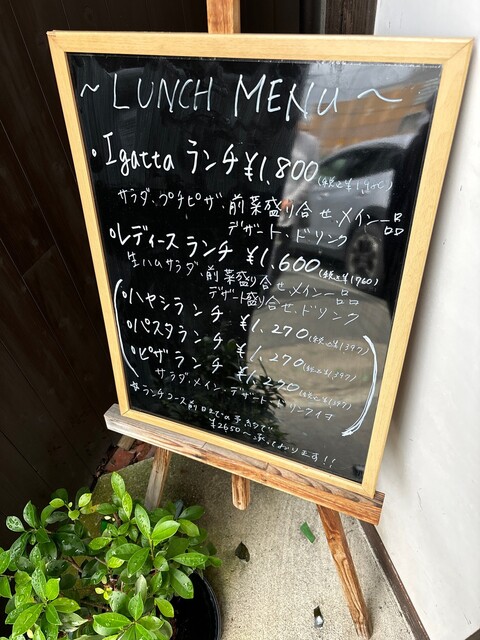 ~ LUNCH MENU ~
・Igatta ランチ ¥1,800 (税込¥1,980)
サラダ、プチピザ、前菜盛り合せ、メイン一品
デザート、ドリンク
・レディースランチ ¥1,600 (税込¥1760)
生ハムサラダ、前菜盛り合せ、メイン一品
デザート盛り合せ、ドリンク
・ハヤシランチ ¥1,270 (税込¥1397)
・パスタランチ ¥1,270 (税込¥1397)
・ピザランチ ¥1,270 (税込¥1397)
サラダ、メイン、デザート、ドリンク付
☆ランチコース 前日までの予約で
¥2650〜承っております!!